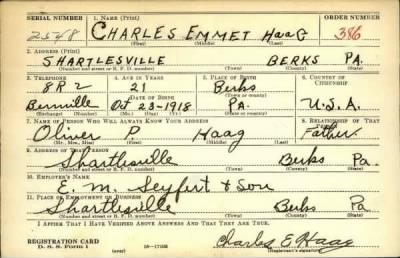 SERIAL NUMBER 1. NAME (Print) ORDER NUMBER
2548 CHARLES EMMET Haag 386
(First) (Middle) (Last)
2. ADDRESS (Print)
SHARTLESVILLE BERKS PA.
(Number and street or R. F. D. number) (Town) (County) (State)
3. TELEPHONE 4. AGE IN YEARS 5. PLACE OF BIRTH 6. COUNTRY OF CITIZENSHIP
8R2 21 Berks
DATE OF BIRTH (Town or county)
Bernville Oct 23-1918 Pa. U.S.A.
(Exchange) (Number) (Mo.) (Day) (Yr.) (State or country)
7. NAME OF PERSON WHO WILL ALWAYS KNOW YOUR ADDRESS 8. RELATIONSHIP OF THAT PERSON
Oliver P. Haag Father
(Mr., Mrs., Miss) (First) (Middle) (Last)
9. ADDRESS OF THAT PERSON
Shartlesville Berks Pa
(Number and street or R. F. D. number) (Town) (County) (State)
10. EMPLOYER'S NAME
E. M. Seyfert & Son
11. PLACE OF EMPLOYMENT OR BUSINESS
Shartlesville Berks Pa
(Number and street or R. F. D. number) (Town) (County) (State)
I AFFIRM THAT I HAVE VERIFIED ABOVE ANSWERS AND THAT THEY ARE TRUE.
REGISTRATION CARD
D. S. S. Form 1 (over) Charles E Haag
(Registrant's signature)